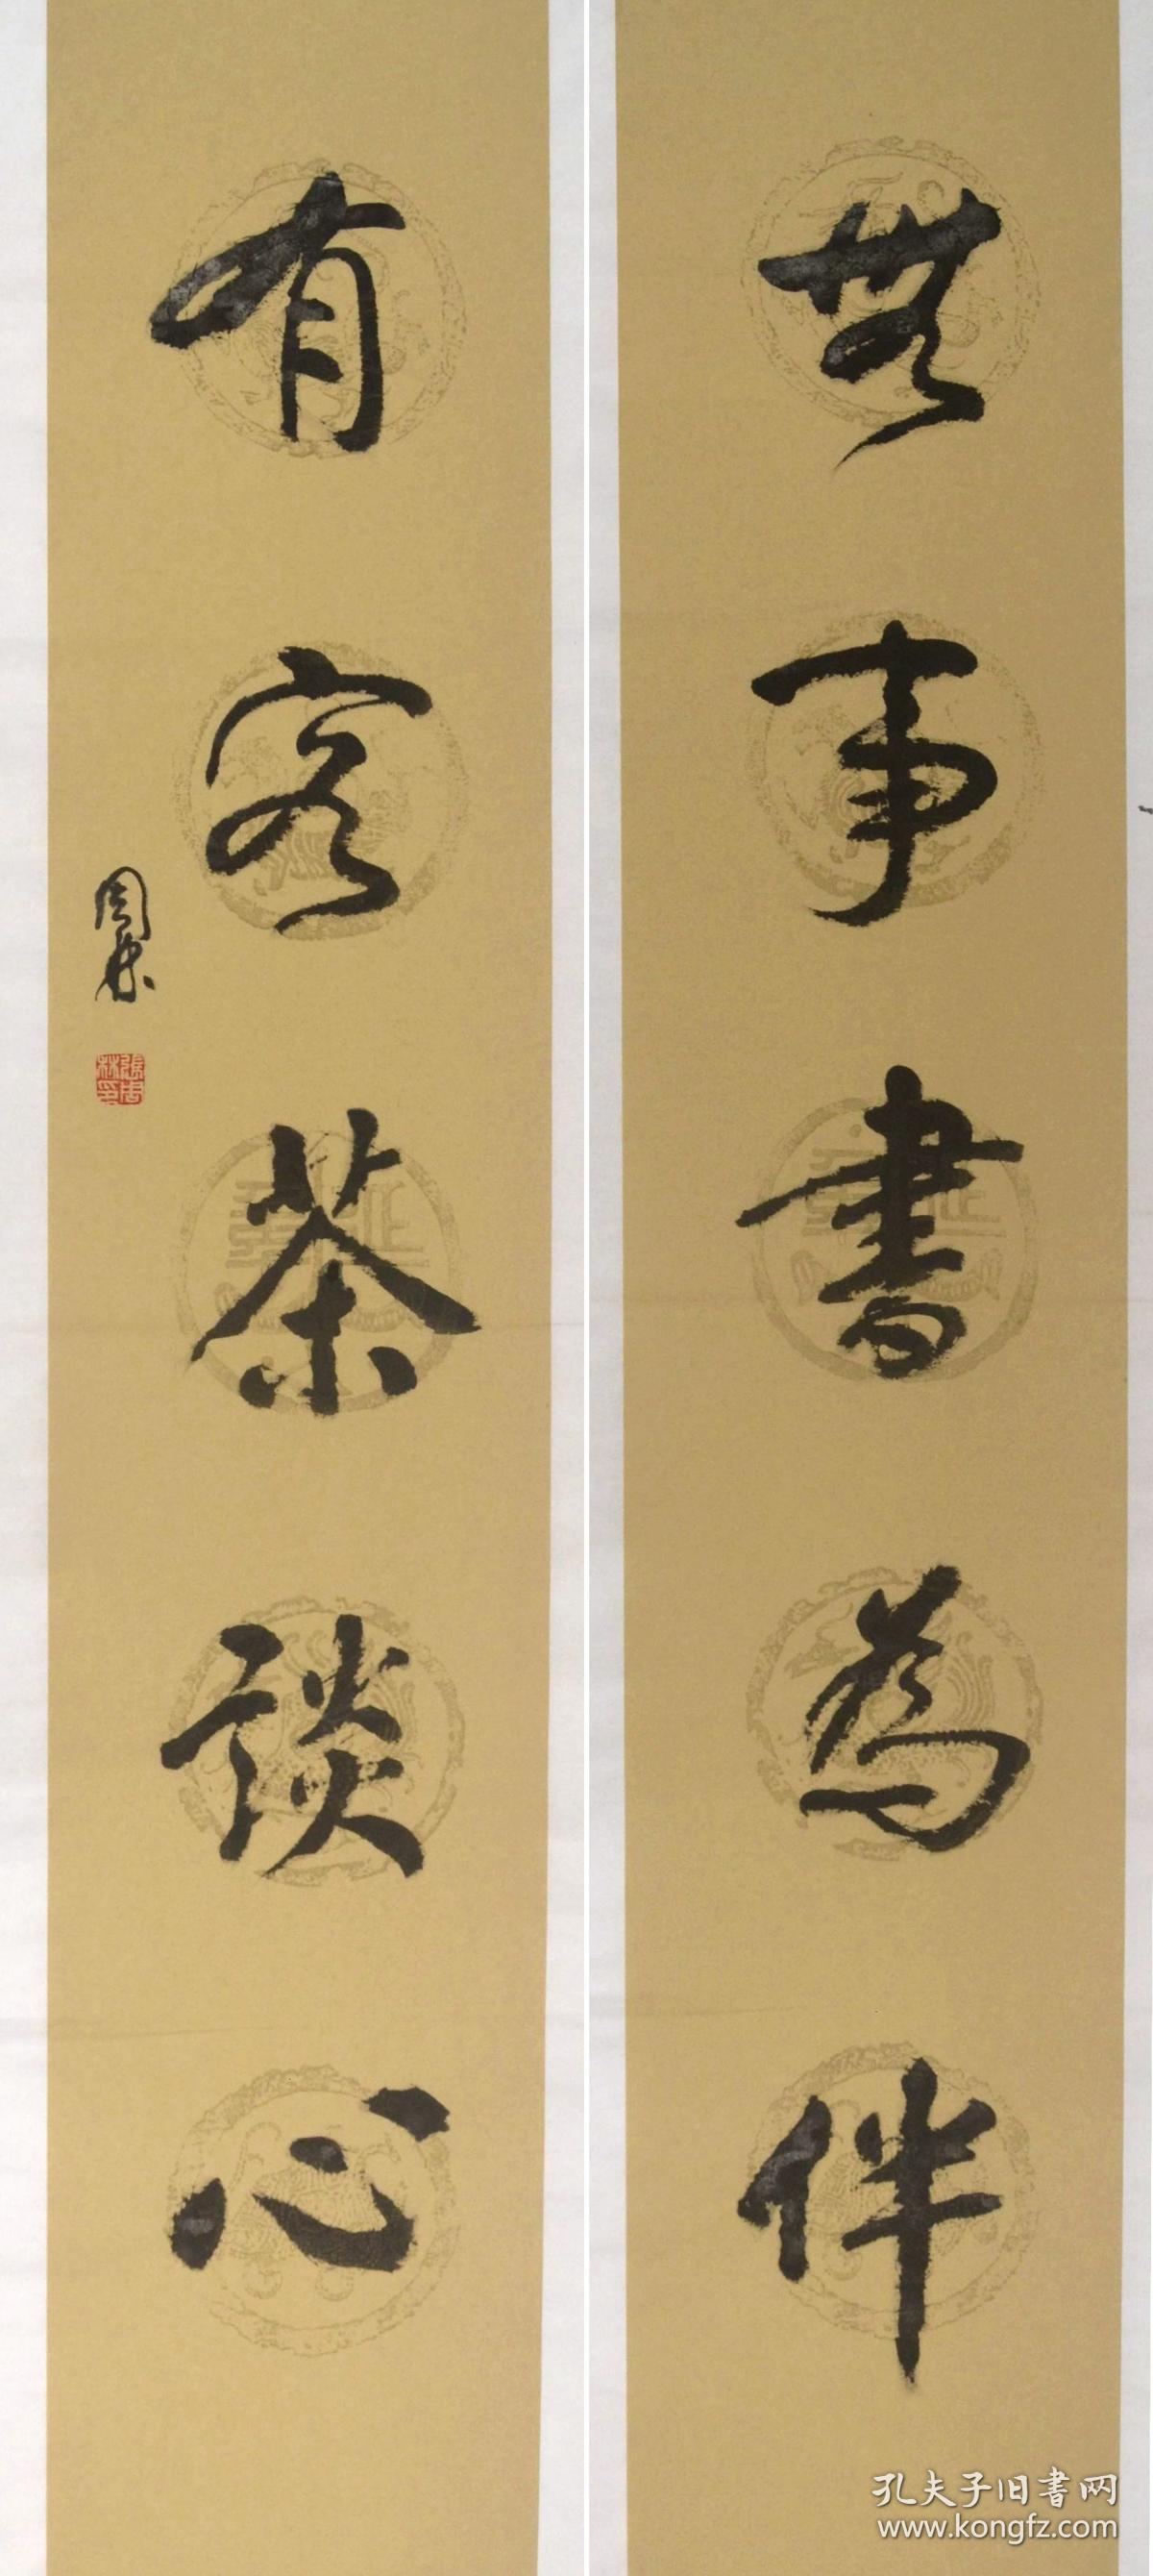 無事書為伴
有客茶談心
周林
張周林印
孔夫子旧書网
www.kongfz.com